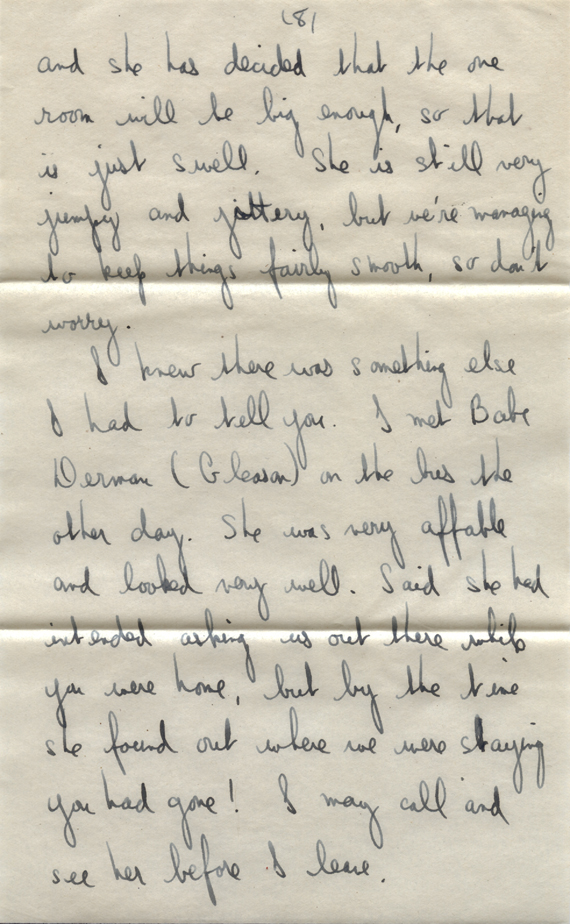 (8)
and she has decided that the one
room will be big enough, so that
is just swell. She is still very
jumpy and jittery, but we're managing
to keep things fairly smooth, so don't
worry.
I knew there was something else
I had to tell you. I met Babe
Derman (Gleason) on the bus the
other day. She was very affable
and looked very well. Said she had
intended asking us out there while
you were home, but by the time
she found out where we were staying
you had gone! I may call and
see her before I leave.